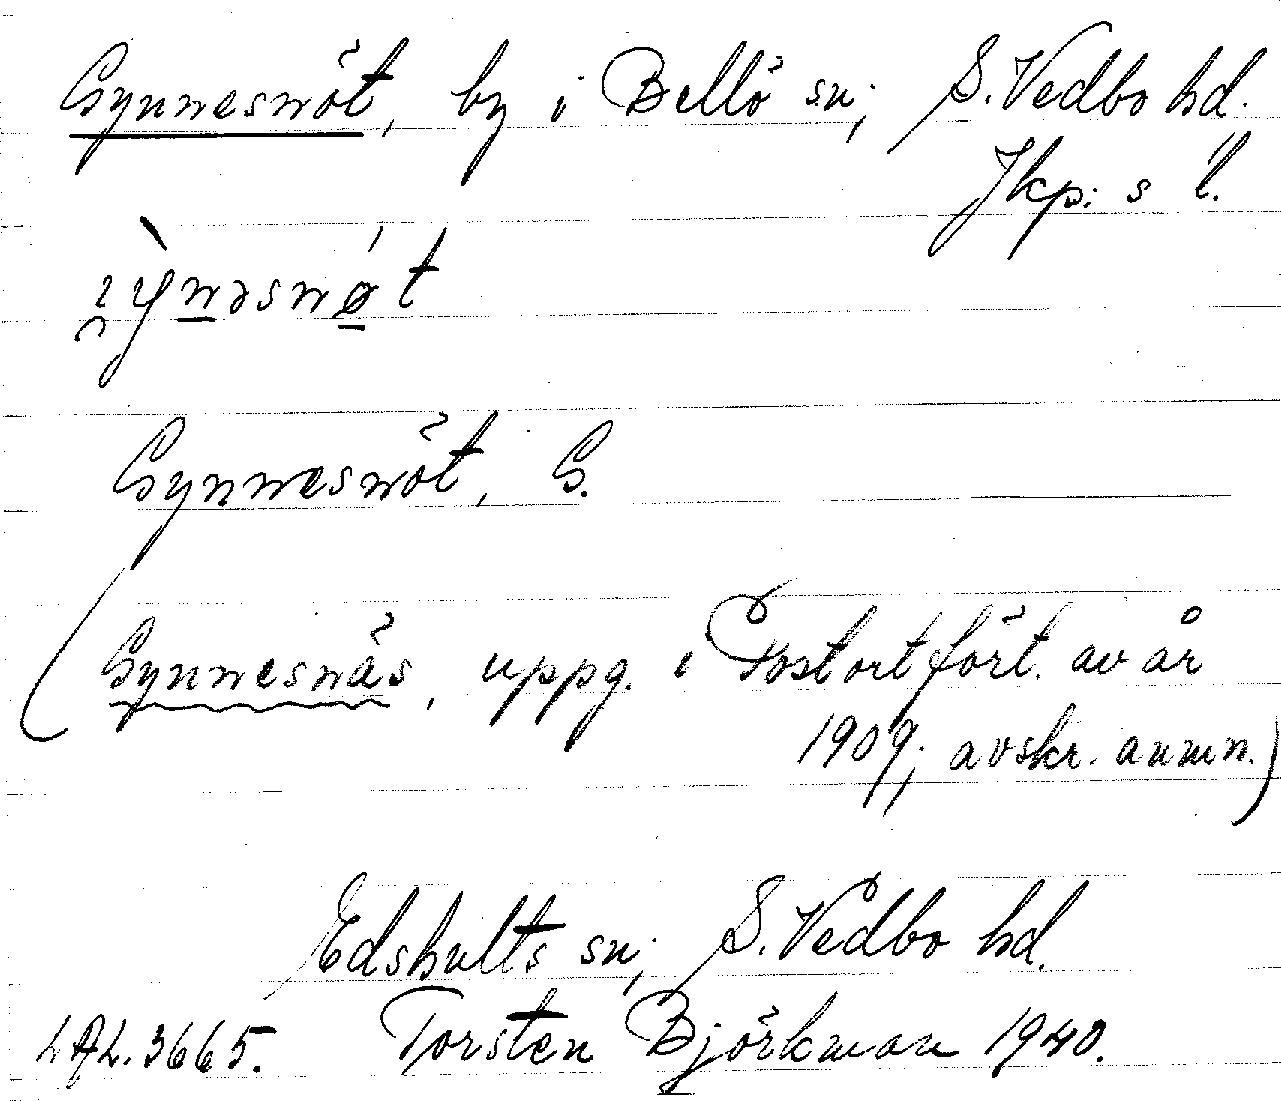 Gynnesnöt, by i Bellö sn, S. Vedbo hd.
Jkp:s l.
Gynnesnöt, G.
(Gynnesnäs, uppg. i Postortfört. av år
1909; avskr. anmn.)
Edshults sn, S. Vedbo hd.
LAL. 3665. Torsten Björkman 1940.